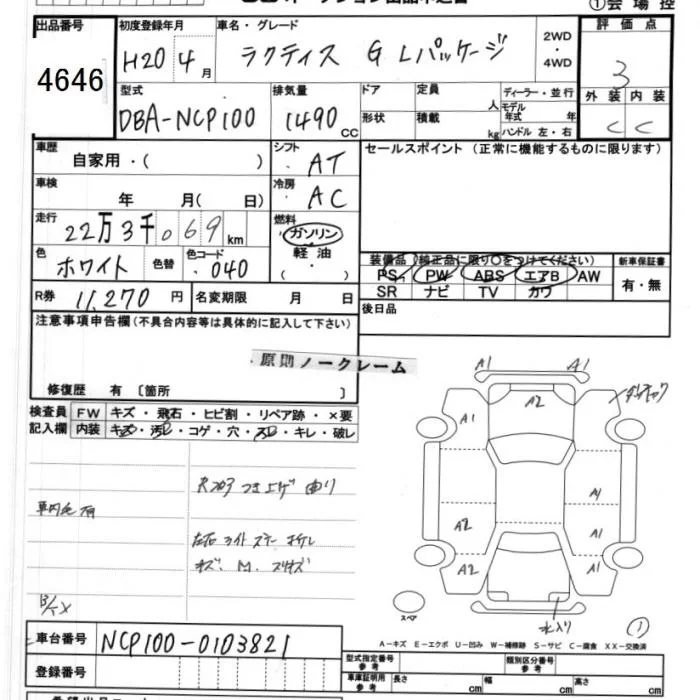 ①会場控
出品番号 初度登録年月 車名・グレード 2WD・4WD 評価点
4646 H20 4月 ラクティス G Lパッケージ 3
型式 排気量 ドア 定員 人 ディーラー・並行 外装 内装
DBA-NCP100 1490cc 形状 積載 kg モデル年式 年 ハンドル 左・右 C C
車歴 自家用・( ) シフト AT セールスポイント (正常に機能するものに限ります)
車検 年 月( 日) 冷房 AC
走行 22万3千069km 燃料 ガソリン・軽油
色 ホワイト 色替 色コード 040 ( )
装備品(純正品に限り○をつけてください) 新車保証書
PS PW ABS エアB AW 有・無
SR ナビ TV カワ
R券 11,270円 名変期限 月 日 後日品
注意事項申告欄(不具合内容等は具体的に記入して下さい)
原則ノークレーム
修復歴 有 〔箇所 〕
検査員 FW キズ・飛石・ヒビ割・リペア跡・×要
記入欄 内装 キズ・汚レ・コゲ・穴・スレ・キレ・破レ
A1 A1
A2
A1
A1
A2 A1
A2 A1
スペア
①
A-キズ E-エクボ U-凹み W-補修跡 S-サビ C-腐食 XX-交換済
車台番号 NCP100-0103821
登録番号
型式指定番号参考 類別区分番号参考
車庫証明用参考 長さ cm 幅 cm 高さ cm